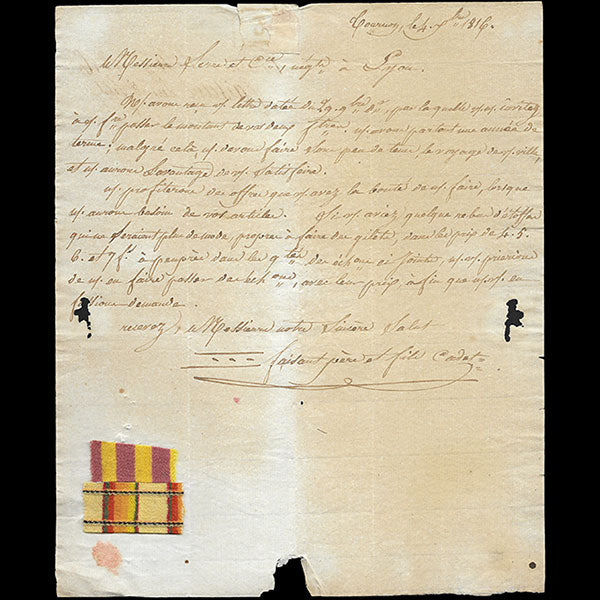 Tournon, le 4 Xbre 1816.
Messieurs Serre et Cie, négts à Lyon.
Ns. avons reçu vs. lettre datée du 9bre dr, par laquelle vs. ns. invitez
à vs. fre passer le montant de vos deux ftres. ns. avons partout une année de
terme; malgré cela ns. devons faire dans peu de tems, le voyage de vs. ville,
et ns. aurons l'avantage de vs. satisfaire.
ns. profiterons des offres que vs. avez la bonté de ns. faire, lorsque
ns. aurons besoin de vos articles. Si vs. aviez quelque rebus d'étoffes
qui ne seraient plus de mode, propres à faire des gilets, dans les prix de 4. 5.
6. et 7 fs. à peuprès dans les qtés des échons ci joints, ns. vs. prierions
de ns. en faire passer des échons, avec leur prix, afin que ns. vs. en
fassions demande.
recevez, Messieurs notre sincère salut
faisant père et fils Cadet